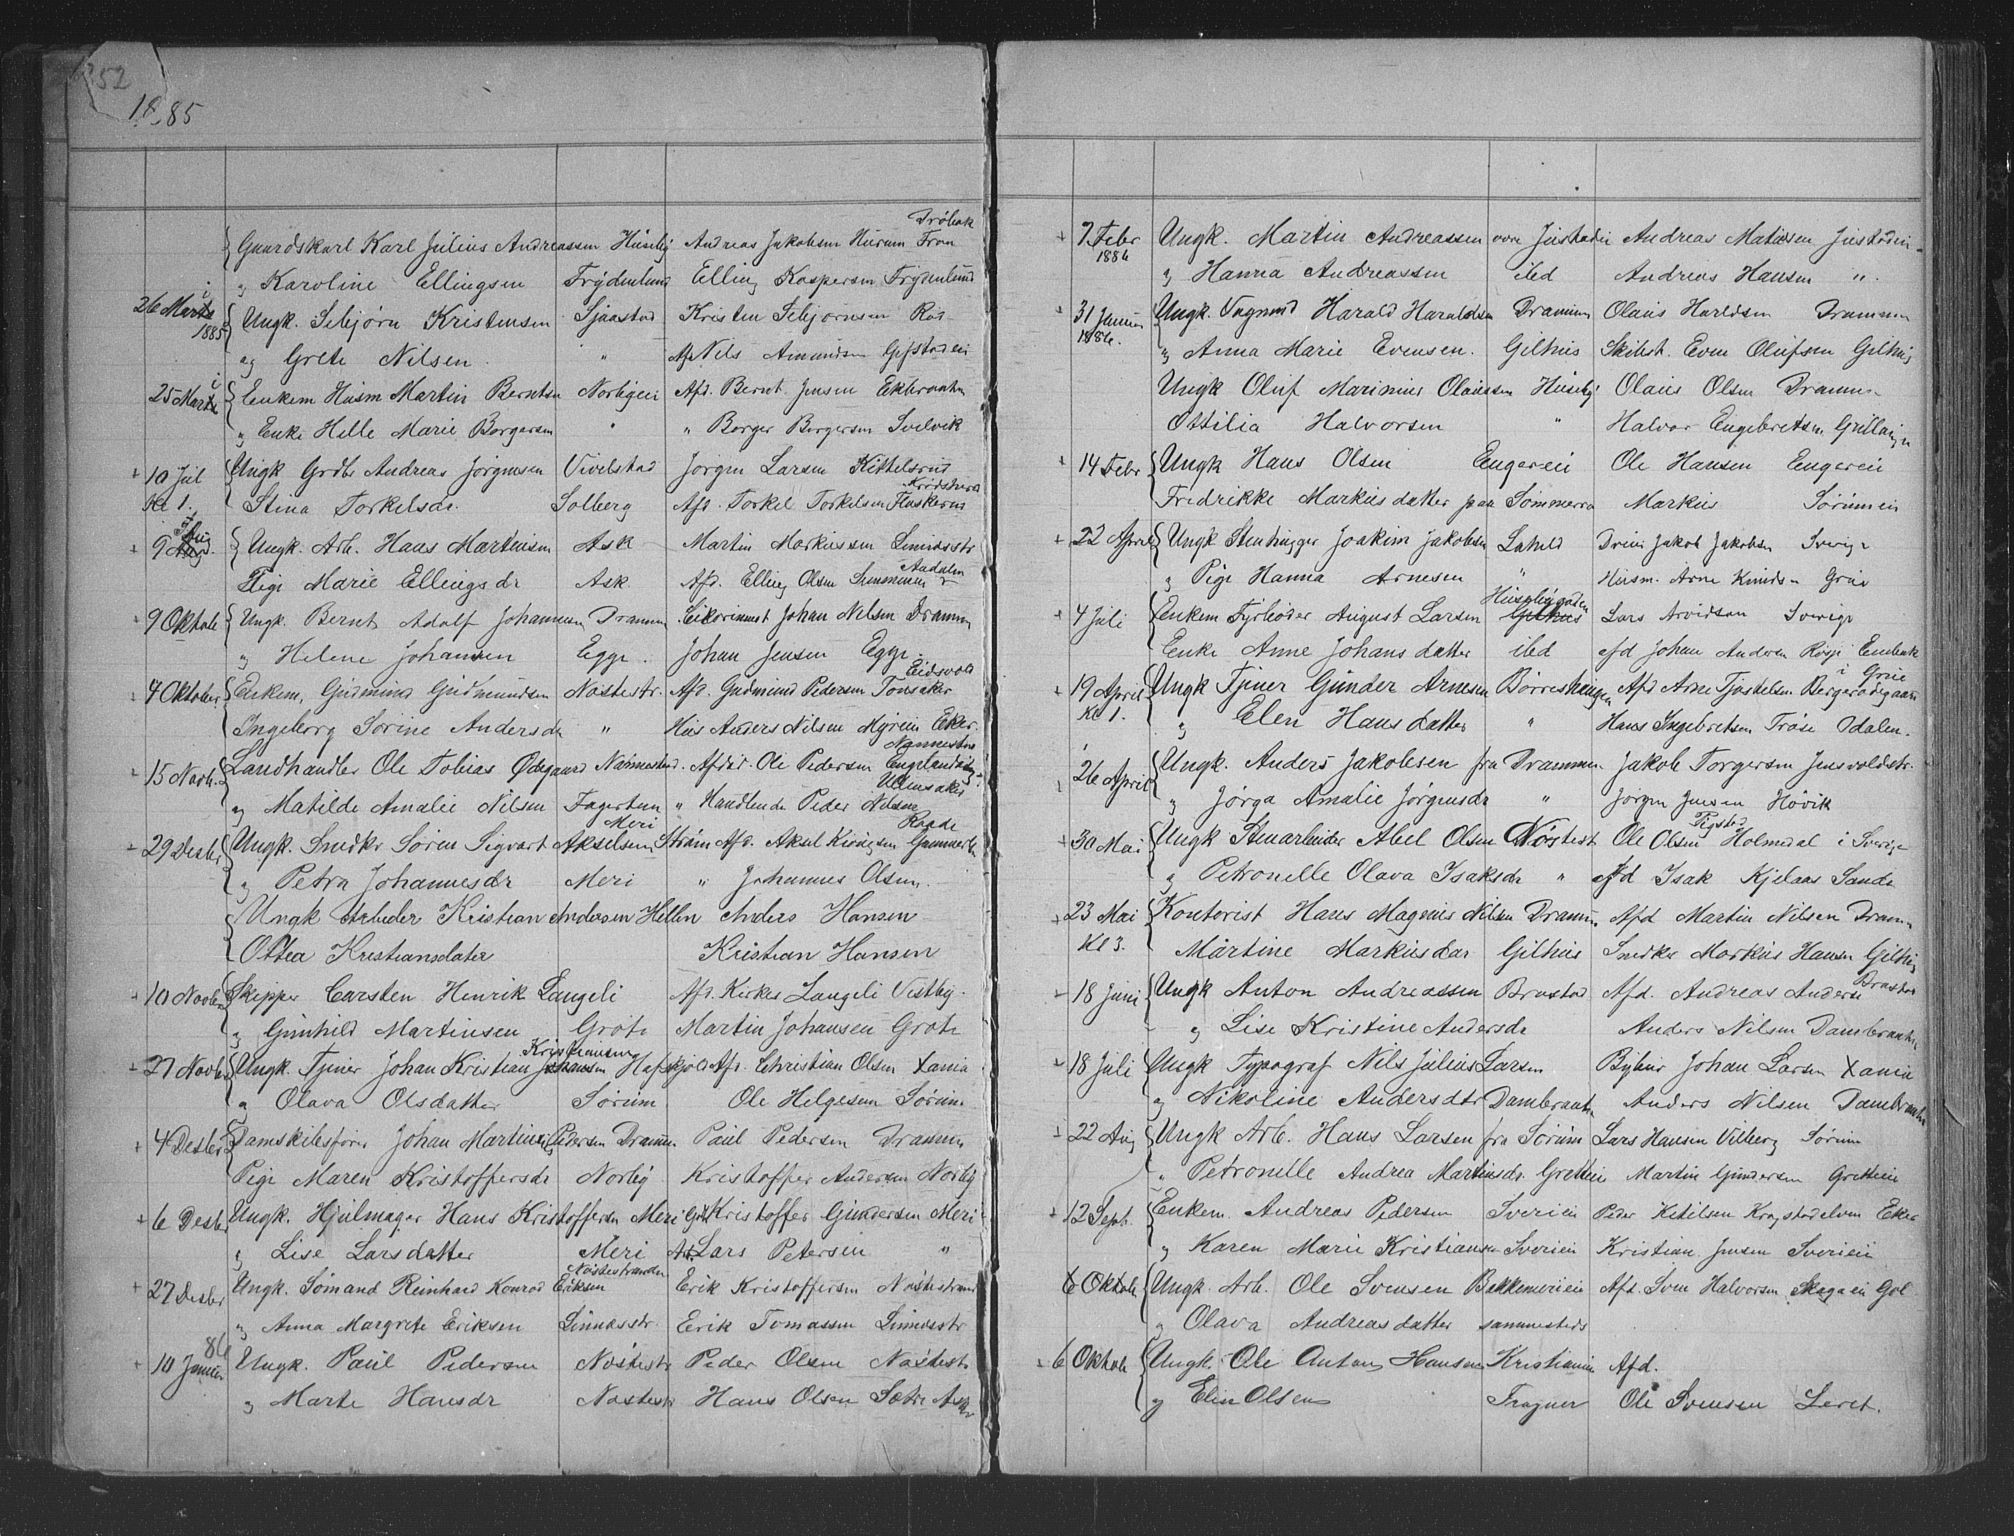 52
1885
Drøbak
Gaardskarl Karl Julius Andreassen Huseby Andreas Jakobsen Hurum Fron
" Karoline Ellingsen Frydenlund Elling Kaspersen Frydenlund
26 Marts 1885 Ungk. Sebjørn Kristensen Sjaastad Kristen Sebjørnsen Røs
og Grete Nilsen " Afd Nils Amundsen Gifstadeie
25 Marts Enkem Husm Martin Berntsen Norbyeie Afd. Bernt Jensen
" Enke Helle Marie Borgersen " " Borger Borgersen Svelvik
10 Jul Ungk Grdbr Andreas Jørgensen Vivelstad Jørgen Larsen Kittelsrud
Kl 1. Stina Torkelsdr. Solberg Afd. Torkel Torkelsen
9 Aug Ungk. Arb. Hans Martinsen Ask Martin Markussen
Pige Marie Ellingsdr Ask. Afd. Elling Olsen
9 Oktob Ungk. Bernt Adolf Johannesen Drammen Johan Nilsen Drammen
" Helene Johansen Egge. Johan Jensen Egge.
Eidsvold
4 Oktober Enkem, Gudmund Gudmundsen Nøstestr. Afd. Gudmund Pedersen Tønsaker
Ingeborg Sorine Andersdr " Hus Anders Nilsen Myreie Eker.
Nannestad
15 Novb. Landhandler Ole Tobias Ødegaard Nannestad. Afd Ole Pedersen
Ullensaker
og Matilde Amalie Nilsen Fagertun " Handlende Peder Nilsen
Meri Raade
29 Desbr Ungk. Smedkr Søren Sigvart Akselsen Strøm Afd. Aksel
" Petra Johannesdr Meri " Johannes Olsen.
Ungk Arbeider Kristian Andersen Hellen Anders Hansen
Ottea Kristiansdater Kristian Hansen
10 Novbr Skipper Carsten Henrik Langeli Afd. Langeli Vestby.
" Gunhild Martinsen Grøte Martin Johansen Grøte
27 Novbr Ungk. Tjener Johan Kristian Johansen Hafskjold Afd. Christian Olsen Xania
" Olava Olsdatter Sørum Ole Helgesen Sørum
4 Desbr Damskibsfører Johan Martinius Pedersen Drammen Paul Pedersen Drammen
Pige Maren Kristoffersdr Norby Kristoffer Andersen Norby
6 Desbr Ungk. Hjulmager Hans Kristoffersen Meri Kristoffer Gundersen Meri
" Lise Larsdatter Meri Afd. Lars Petersen "
Nøstestranden
27 Desbr Ungk. Sømand Reinhard Konrad Eriksen Erik Kristoffersen Nøstestrand
" Anna Margrete Eriksen Linnesstr. Erik Tomassen Linnesstr
86
10 Januar Ungk. Paul Pedersen Nøstestr Peder Olsen Nøstestr
" Marte Hansdr Nøstestr Hans Olsen Asker
7 Febr 1886 Ungk. Martin Andreassen Justadeie Andreas Justadeie
" Hanna Andreassen ibd Andreas Hansen "
31 Januar 1886. Ungk. Vagnund Harald Haraldsen Drammen Olaus Harldsen Drammen
" Anna Marie Evensen. Gilhus Skibst. Even Olufsen Gilhus
Ungk Oluf Marinius Olaussen Huseby Olaus Olsen Drammen
Ottilia Halvorsen " Halvor Engebretsen
14 Febr Ungk Hans Olsen Engereie Ole Hansen Engereie
Fredrikke Markusdatter paa Sommerro Markus Sørumeie
22 April Ungk Stenhugger Joakim Jakobsen Lahell Jakob Jakobsen Sverige
" Pige Hanna Arnesen " Husm. Arne Knudsen
Husebygaden
4 Juli Enkem Fyrbøder August Larsen Gilhus Lars Arvidson Sverige
Enke Anne Johansdatter ibd afd Johan Andersen
19 April Ungk Tjener Gunder Arnesen Børreshaugen Afd Arne Tjostelsen
Kl 1. " Elen Hansdatter " Hans Ingebretsen
26 April Ungk. Anders Jakobsen fra Drammen Jakob Torgersen
" Jørga Amalie Jørgensdr " Jørgen Jensen Høvik
30 Mai Ungk Stenarbeider Abel Olsen Nøstest Ole Olsen Holmedal i Sverige
" Petronelle Olava Isaksdr " Afd Isak Kjelaas Sande
23 Mai Kontorist Hans Magnus Nilsen Drammen Afd Martin Nilsen Drammen
Kl 3. Martine Markusdar Gilhus Smedkr Markus Hansen Gilhus
18 Juni Ungk Anton Andreassen Brastad Afd. Andreas Anderse Brastad
" Lise Kristine Andersdr Anders Nilsen Dambraaten
18 Juli Ungk Typograf Nils Julius Larsen Johan Larsen Xania
" Nikoline Andersdtr Dambraaten Anders Nilsen Dambraaten
22 Aug Ungk Arb. Hans Larsen fra Sørum Lars Hansen Vilberg Sørum
" Petronelle Andrea Martinsdr. Gretteie Martin Gundersen Gretteeie
12 Sept. Enkem. Andreas Pedersen Svereie Peder Ketilsen Krogstadelven Eker
" Karen Marie Kristiansen Svereie Kristian Jensen Svereie
6 Oktob Ungk. Arb. Ole Svensen Bakkemerieie Afd. Sven Halvorsen Skagaeie Gol
" Olava Andreasdatter sammesteds
6 Oktob Ungk. Ole Anton Hansen Kristiania Afd.
og Elin Olsen Tragner Ole Svensen Leret.